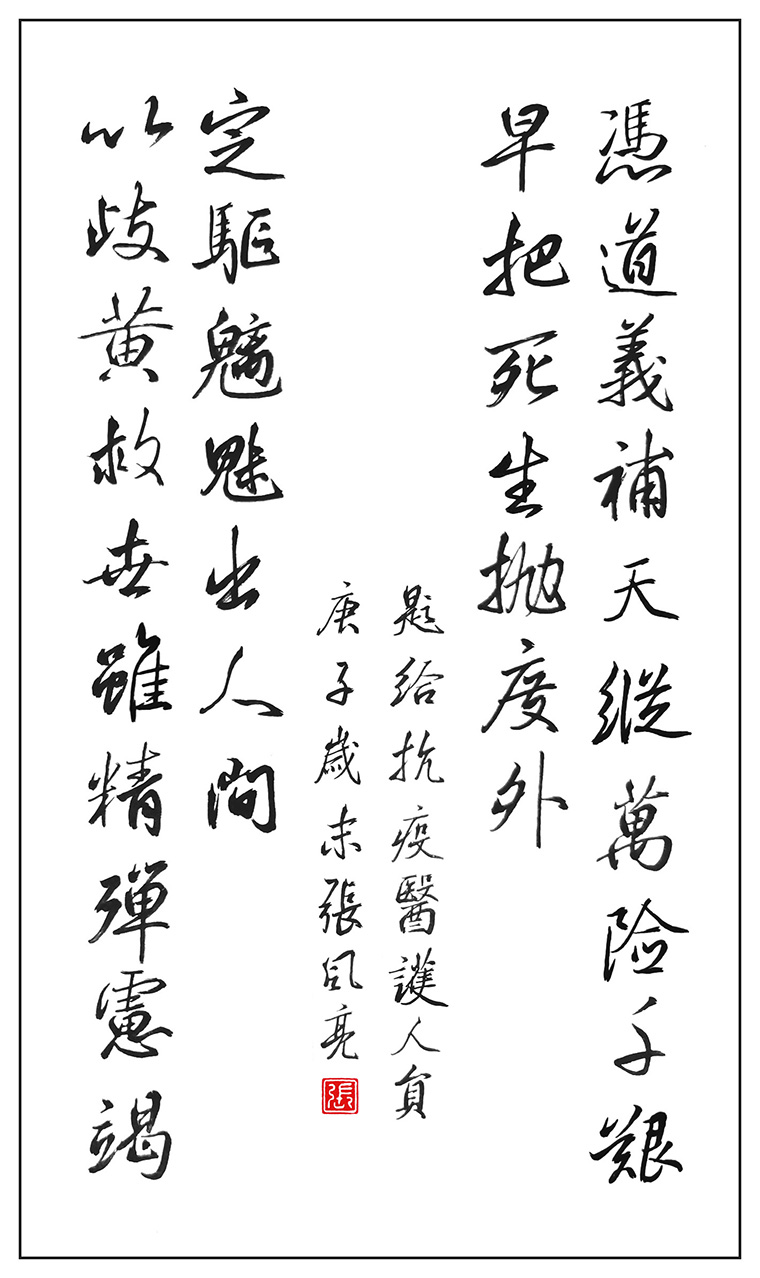 憑道義補天縱萬險千艱
早把死生拋度外
以歧黃救世雖精殫慮竭
定驅魑魅出人間
題給抗疫醫護人員
庚子歲末張風亮
張